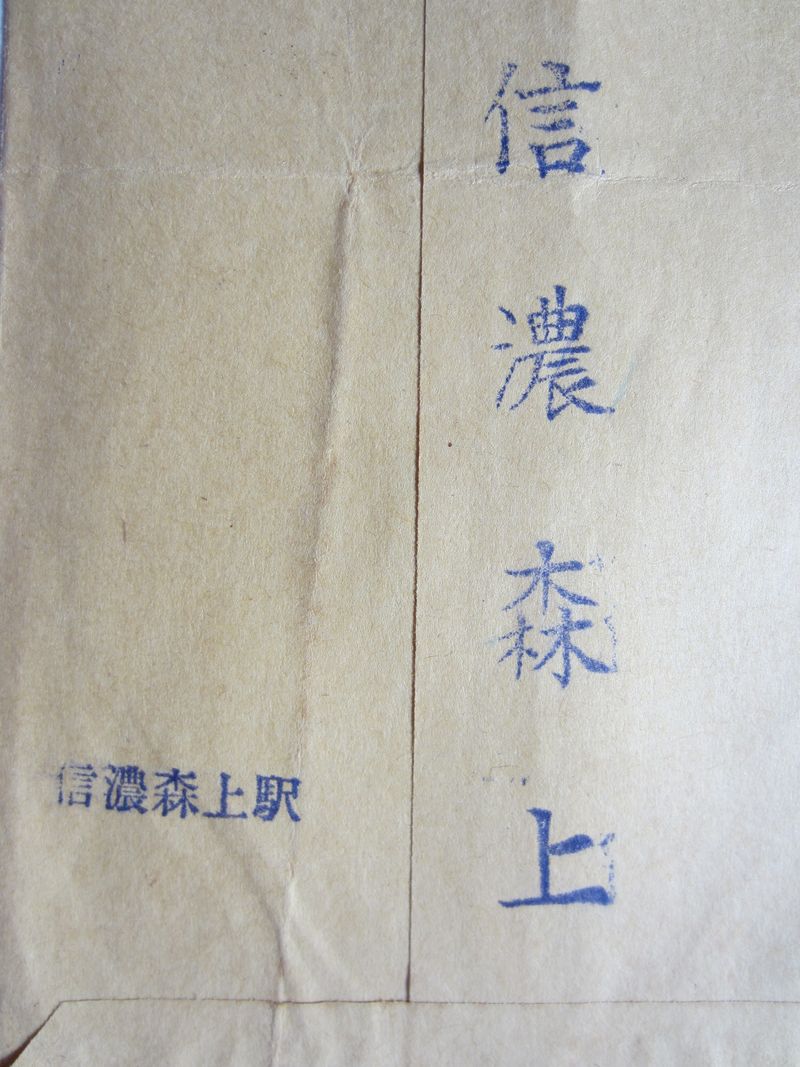 信濃森上
信濃森上駅